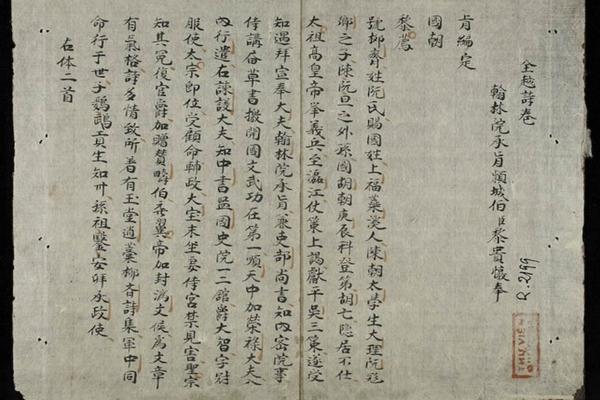 全越詩卷
R.2199
翰林院承旨頴城伯臣黎貴惇奉
旨編定
國朝
黎廌
號抑齋姓阮氏賜國姓上福蘂溪人陳朝太學生大理阮飛
卿之子陳阮旦之外孫胡朝庚辰科登第胡亡隱居不仕
太祖高皇帝挙義兵至瀘江仗策上謁獻平吳三策遂受
知遇拜宣奉大夫翰林院承旨兼吏部尚書知內密院事
侍講草書撥開國文武功在第一順天中加榮祿大夫入
內行遣右諫議大夫知中書監國史院一二館爵大智字尉
服使太宗即位受顧命輔政大宝末坐妻侍宮禁見害聖宗
知其冤復官爵加贈賛疇伯襄翼帝加封濟文侯為文章
有氣格詩多情致所著有玉堂遺藁抑齋詩集軍中同
命行于世子鸚鵡貢生知州孫祖鑒安邦承政使
古体二首
THƯ VIỆN